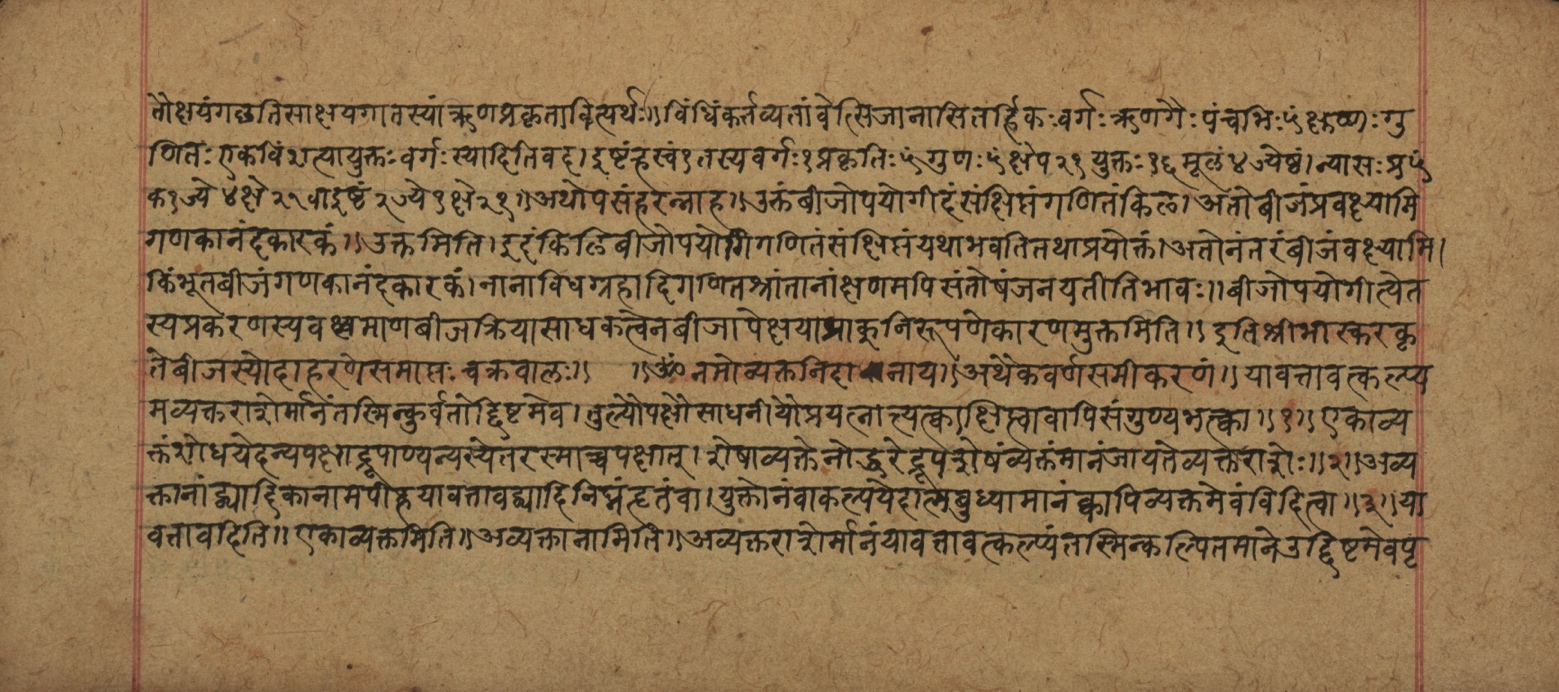 तौक्षयंगछतिसाक्षयगातस्यांऋणप्रकृतावित्यर्थः॥विधिंकर्तव्यतांवेत्सिजानासितर्हिकःवर्गःऋणगैःपंचभिः५क्षुण्णःगु
णितःएकविंशत्यायुक्तःवर्गःस्यादितिवद।इष्टंह्रस्वं१तस्यवर्गः१प्रकृतिः५ंगुणः५ंक्षेप२१युक्तः१६मूलं४ज्येष्ठं।न्यासःप्र५ं
क१ज्ये४क्षे२१वाइष्टं२ज्ये१क्षे२१॥अथोपसंहरन्नाह॥उक्तंबीजोपयोगीदंसंक्षिप्तंगणितंकिल।अतोबीजंप्रवक्ष्यामि
गणकानंदकारकं॥उक्तमिति।इदंकिलबीजोपयोगिगणितंसंक्षिप्तंयथाभवतितथाप्रयोक्तं।अतोनंतरंबीजंवक्ष्यामि।
किंभूतबीजंगणकानंदकारकं।नानाविधग्रहादिगणितश्रांतानांक्षणमपिसंतोषंजनयतीतिभावः॥बीजोपयोगीत्येत
स्यप्रकरणस्यवक्ष्यमाणबीजक्रियासाधकत्वेनबीजापेक्षयाप्राक्निरूपणेकारणमुक्तमिति॥इतिश्रीभास्करकृ
तेबीजस्योदाहरणेसमाप्तःचक्रवालः॥ ॥ॐनमोव्यक्तनिदानाय॥अथैकवर्णसमीकरणं॥यावत्तावत्कल्प्य
मव्यक्तराशेर्मानंतस्मिन्कुर्वतोद्दिष्टमेव।तुल्यौपक्षौसाधनीयौप्रयत्नात्त्यत्काक्षिप्त्वावापिसंगुण्यभत्क्वा॥१॥एकाव्य
क्तंशोधयेदन्यपक्षाद्रूपाण्यन्यस्येतरस्माच्चपक्षात्।शेषाव्यक्तेनोद्धरेद्रूपशेषंव्यक्तंमानंजायतेव्यक्तराशेः॥२॥अव्य
क्तानांद्व्यादिकानामपीहयावत्तावद्व्यादिनिघ्नंहृतंवा।युक्तोनंवाकल्पयेदात्मबुध्यामानंक्वापिव्यक्तमेवंविदित्वा॥३॥या
वत्तावदिति॥एकाव्यक्तमिति॥अव्यक्तानामिति॥अव्यक्तराशेर्मानंयावत्तावत्कल्प्यंतस्मिन्कल्पितमानेउद्दिष्टमेवपृ